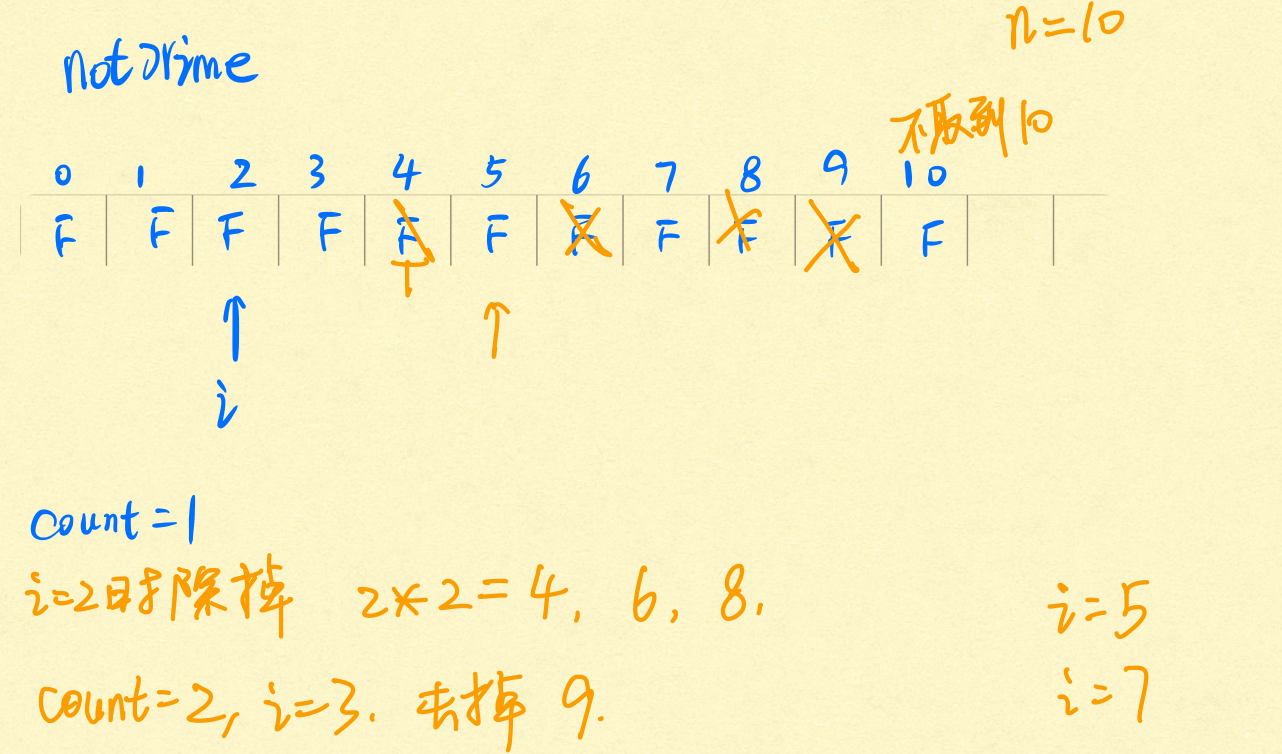 n=10
notPrime
不取到10
0 1 2 3 4 5 6 7 8 9 10
F F F F F F F F F F F
T
i
count=1
i=2时除掉 2*2=4, 6, 8.
i=5
count=2, i=3. 去掉 9.
i=7